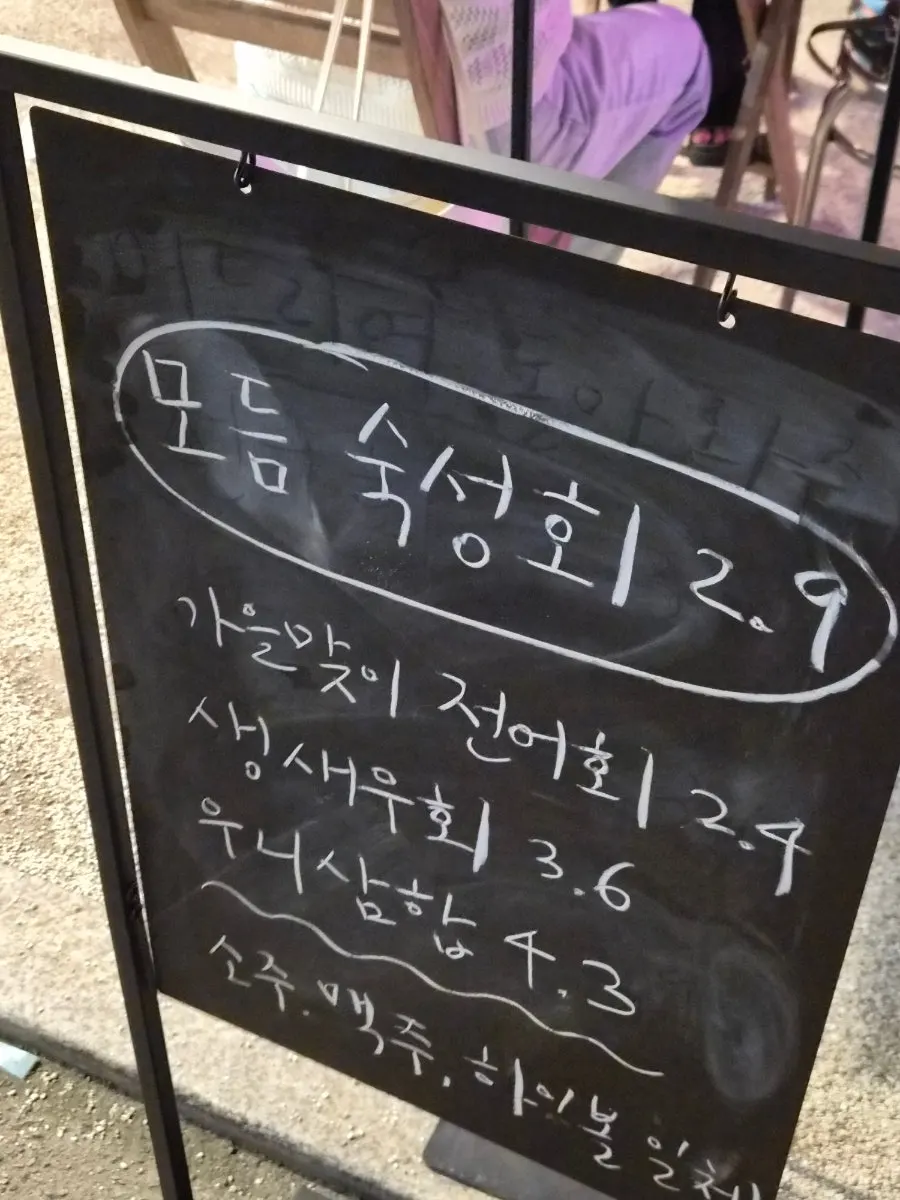 모듬 숙성회 2.9
가을맞이 전어회 2.4
생새우회 3.6
우니삼합 4.3
소주. 맥주. 하이볼 일체